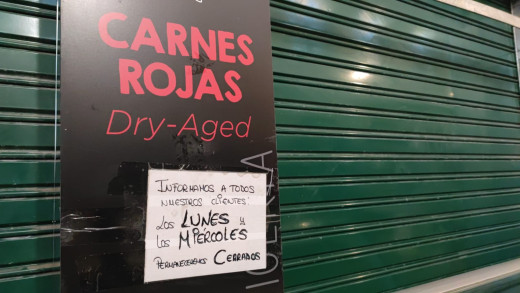 CARNES
ROJAS
Dry-Aged
INFORMAMOS A TODOS
NUESTROS CLIENTES:
LOS LUNES y
LOS MIÉRCOLES
PERMANECEREMOS CERRADOS